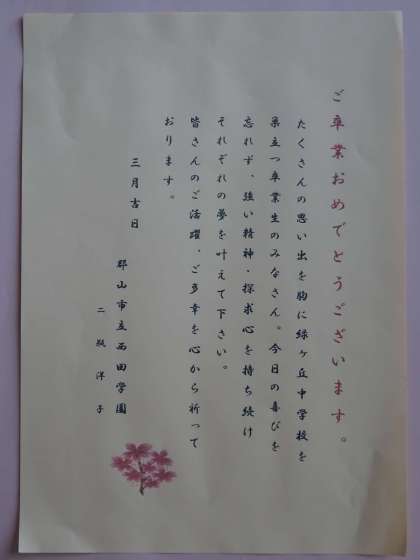 ご卒業おめでとうございます。
たくさんの思い出を胸に緑ヶ丘中学校を
巣立つ卒業生のみなさん。今日の喜びを
忘れず、強い精神・探求心を持ち続け
それぞれの夢を叶えて下さい。
皆さんのご活躍、ご多幸を心から祈って
おります。
三月吉日
郡山市立西田学園
二瓶洋子